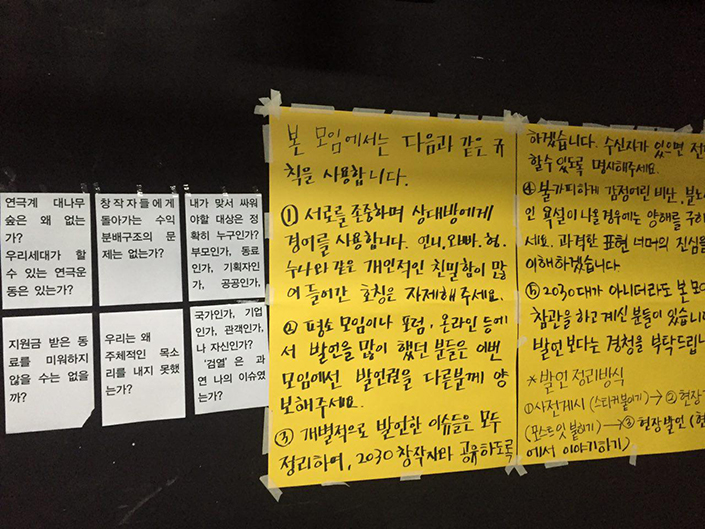 연극계 대나무
숲은 왜 없는
가?
우리세대가 할
수 있는 연극운
동은 있는가?
창작자들에게
돌아가는 수익
분배구조의 문
제는 없는가?
내가 맞서 싸워
야할 대상은 정
확히 누구인가?
부모인가, 동료
인가, 기획자인
가, 공공인가,
지원금 받은 동
료를 미워하지
않을 수는 없을
까?
우리는 왜
주체적인 목소
리를 내지 못했
는가?
국가인가, 기업
인가, 관객인가,
나 자신인가?
‘검열’은 과
연 나의 이슈였
는가?
본 모임에서는 다음과 같은 규
칙을 사용합니다.
① 서로를 존중하며 상대방에게
경어를 사용합니다. 언니, 오빠, 형,
누나와 같은 개인적인 친밀함이 많
이 들어간 호칭은 자제해 주세요.
② 평소 모임이나 포럼, 온라인 등에
서 발언을 많이 했던 분들은 이번
모임에선 발언권을 다른분께 양
보해주세요.
③ 개별적으로 발언한 이슈들은 모두
정리하여, 2030 창작자와 공유하도록
하겠습니다. 수신자가 있으면 전
할 수 있도록 명시해주세요.
④ 불가피하게 감정어린 비난,
인 욕설이 나올 경우에는 양해를 구하
세요. 과격한 표현 너머의 진심을
이해하겠습니다
⑤ 2030대가 아니더라도 본 모
참관을 하고 계신 분들이 있습니
발언보다는 경청을 부탁드립니
* 발언 정리방식
①사전게시 (스티커붙이기) → ② 현장
(포스트잇 붙이기) → ③ 현장발언 (현
에서 이야기하기)